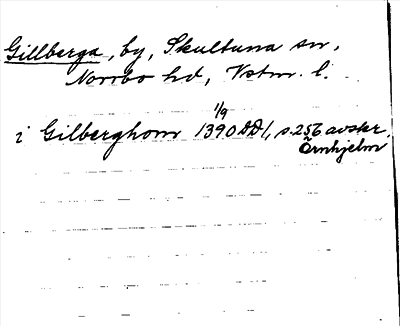 Gillberga, by, Skultuna sn,
Norrbo hd, Vstm. l.
1/9
i Gilberghom 1390 DD1, s. 256 avskr.
Örnhjelm